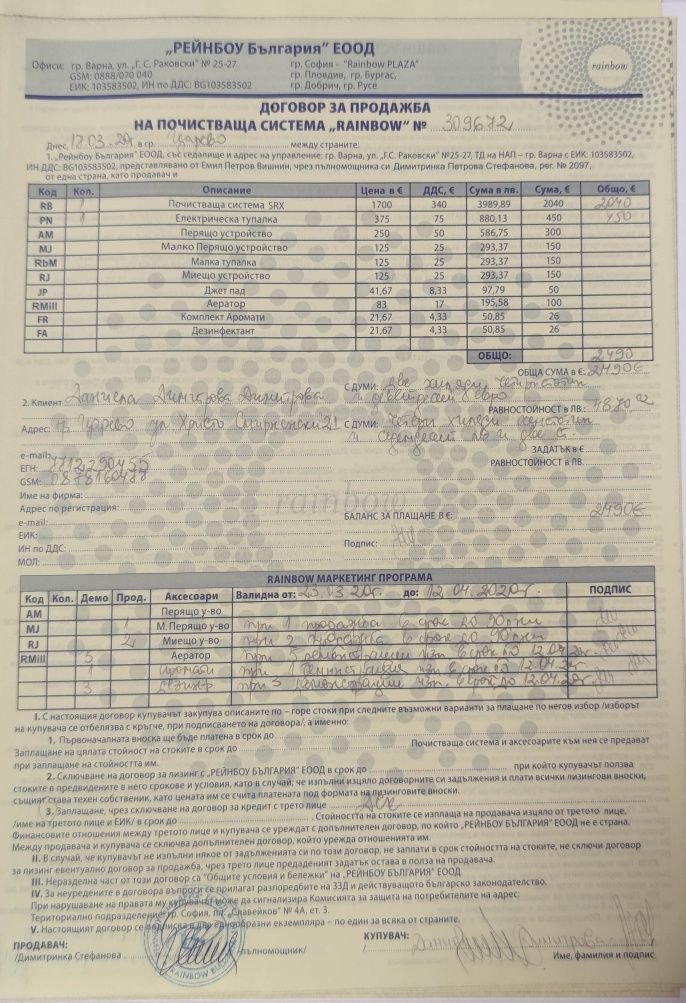 „РЕЙНБОУ България” ЕООД
Офиси: гр. Варна, ул. „Г. С. Раковски” № 25-27 гр. София - "Rainbow PLAZA"
GSM: 0888/070 040 гр. Пловдив, гр. Бургас,
ЕИК: 103583502, ИН по ДДС: BG103583502 гр. Добрич, гр. Русе
rainbow
ДОГОВОР ЗА ПРОДАЖБА
НА ПОЧИСТВАЩА СИСТЕМА „RAINBOW” № 309672
Днес, 17.03.20г в гр. Царево между страните:
1. „Рейнбоу България” ЕООД, със седалище и адрес на управление: гр. Варна, ул. „Г.С. Раковски” №25-27, ТД на НАП – гр. Варна с ЕИК: 103583502,
ИН ДДС: BG103583502, представлявано от Емил Петров Вишнин, чрез пълномощника си Димитринка Петрова Стефанова, рег. № 2097,
от една страна, като продавач и
Код Кол. Описание Цена в € ДДС, € Сума в лв. Сума, € Общо, €
RB 1 Почистваща система SRX 1700 340 3989,89 2040 2040
PN 1 Електрическа тупалка 375 75 880,13 450 450
AM Перящо устройство 250 50 586,75 300
MJ Малко Перящо устройство 125 25 293,37 150
RbM Малка тупалка 125 25 293,37 150
RJ Миещо устройство 125 25 293,37 150
JP Джет пад 41,67 8,33 97,79 50
RMill Аератор 83 17 195,58 100
FR Комплект Аромати 21,67 4,33 50,85 26
FA Дезинфектант 21,67 4,33 50,85 26
ОБЩО: 2490
ОБЩА СУМА в €: 2490€
2. Клиент Димитрова С ДУМИ: две хиляди четиристотин
и деветдесет евро
РАВНОСТОЙНОСТ в ЛВ.: 4870,02
Адрес: гр. Царево ул. Христо Смирненски 21 С ДУМИ: четири хиляди осемстотин
и седемдесет лв и две ст.
e-mail: ЗАДАТЪК в €
ЕГН: РАВНОСТОЙНОСТ в ЛВ.
GSM:
Име на фирма:
rainbow
Адрес по регистрация:
e-mail: БАЛАНС ЗА ПЛАЩАНЕ в €: 2490€
ЕИК:
ИН по ДДС: Подпис:
МОЛ:
RAINBOW МАРКЕТИНГ ПРОГРАМА
Код Кол. Демо Прод. Аксесоари Валидна от: 23.03.20г. до: 12.04.2020г. ПОДПИС
AM Перящо у-во
MJ 1 М. Перящо у-во при 1 продажба в срок до 90 дни
RJ 2 Миещо у-во при 2 продажби в срок до 90 дни
RMill 5 Аератор при 5 демонстрации в срок до 12.04.20г
1 аромати при 1 демонстрация в срок до 12.04.20г
3 при 3 демонстрации в срок до 12.04.20г
I. С настоящия договор купувачът закупува описаните по – горе стоки при следните възможни варианти за плащане по негов избор /изборът
на купувача се отбелязва с кръгче, при подписването на договора/, а именно:
1. Първоначалната вноска ще бъде платена в срок до
Заплащане на цялата стойност на стоките в срок до Почистваща система и аксесоарите към нея се предават
при заплащане на стойността им.
2. Сключване на договор за лизинг с „РЕЙНБОУ БЪЛГАРИЯ” ЕООД в срок до при който купувачът ползва
стоките в предвидените в него срокове и условия, като в случай, че изпълни изцяло договорните си задължения и плати всички лизингови вноски,
същият става техен собственик, като цената им се счита платената под формата на лизинговите вноски.
3. Заплащане, чрез сключване на договор за кредит с трето лице
/име на третото лице и ЕИК/ в срок до . Стойността на стоките се изплаща на продавача изцяло от третото лице.
Финансовите отношения между третото лице и купувача се уреждат с допълнителен договор, по който „РЕЙНБОУ БЪЛГАРИЯ” ЕООД не е страна.
Между продавача и купувача се сключва допълнителен договор, който урежда отношенията им.
II. В случай, че купувачът не изпълни някое от задълженията си по този договор, не заплати в срок стойността на стоките, не сключи договор
за лизинг евентуално договор за продажба, чрез трето лице предаденият задатък остава в полза на продавача.
III. Неразделна част от този договор са "Общите условия и бележки" на „РЕЙНБОУ БЪЛГАРИЯ” ЕООД
IV. За неуредените в договора въпроси се прилагат разпоредбите на ЗЗД и действащото българско законодателство.
При нарушаване на правата му купувачът може да сигнализира Комисията за защита на потребителите на адрес:
Териториално подразделение: гр. София, пл. „Славейков” № 4А, ет. 3.
V. Настоящият договор се подписва в два еднообразни екземпляра – по един за всяка от страните.
ПРОДАВАЧ: КУПУВАЧ: Димитрова
/Димитринка Стефанова пълномощник/ Име, фамилия и подпис